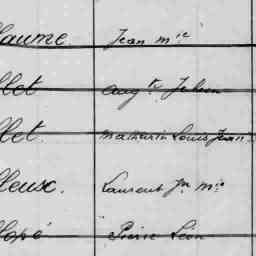 laume Jean Mie
llet Augte Jehan
llet. Mathurin Louis Jean
lleux. Laurent Jn Mie
llopé Pierre Léon